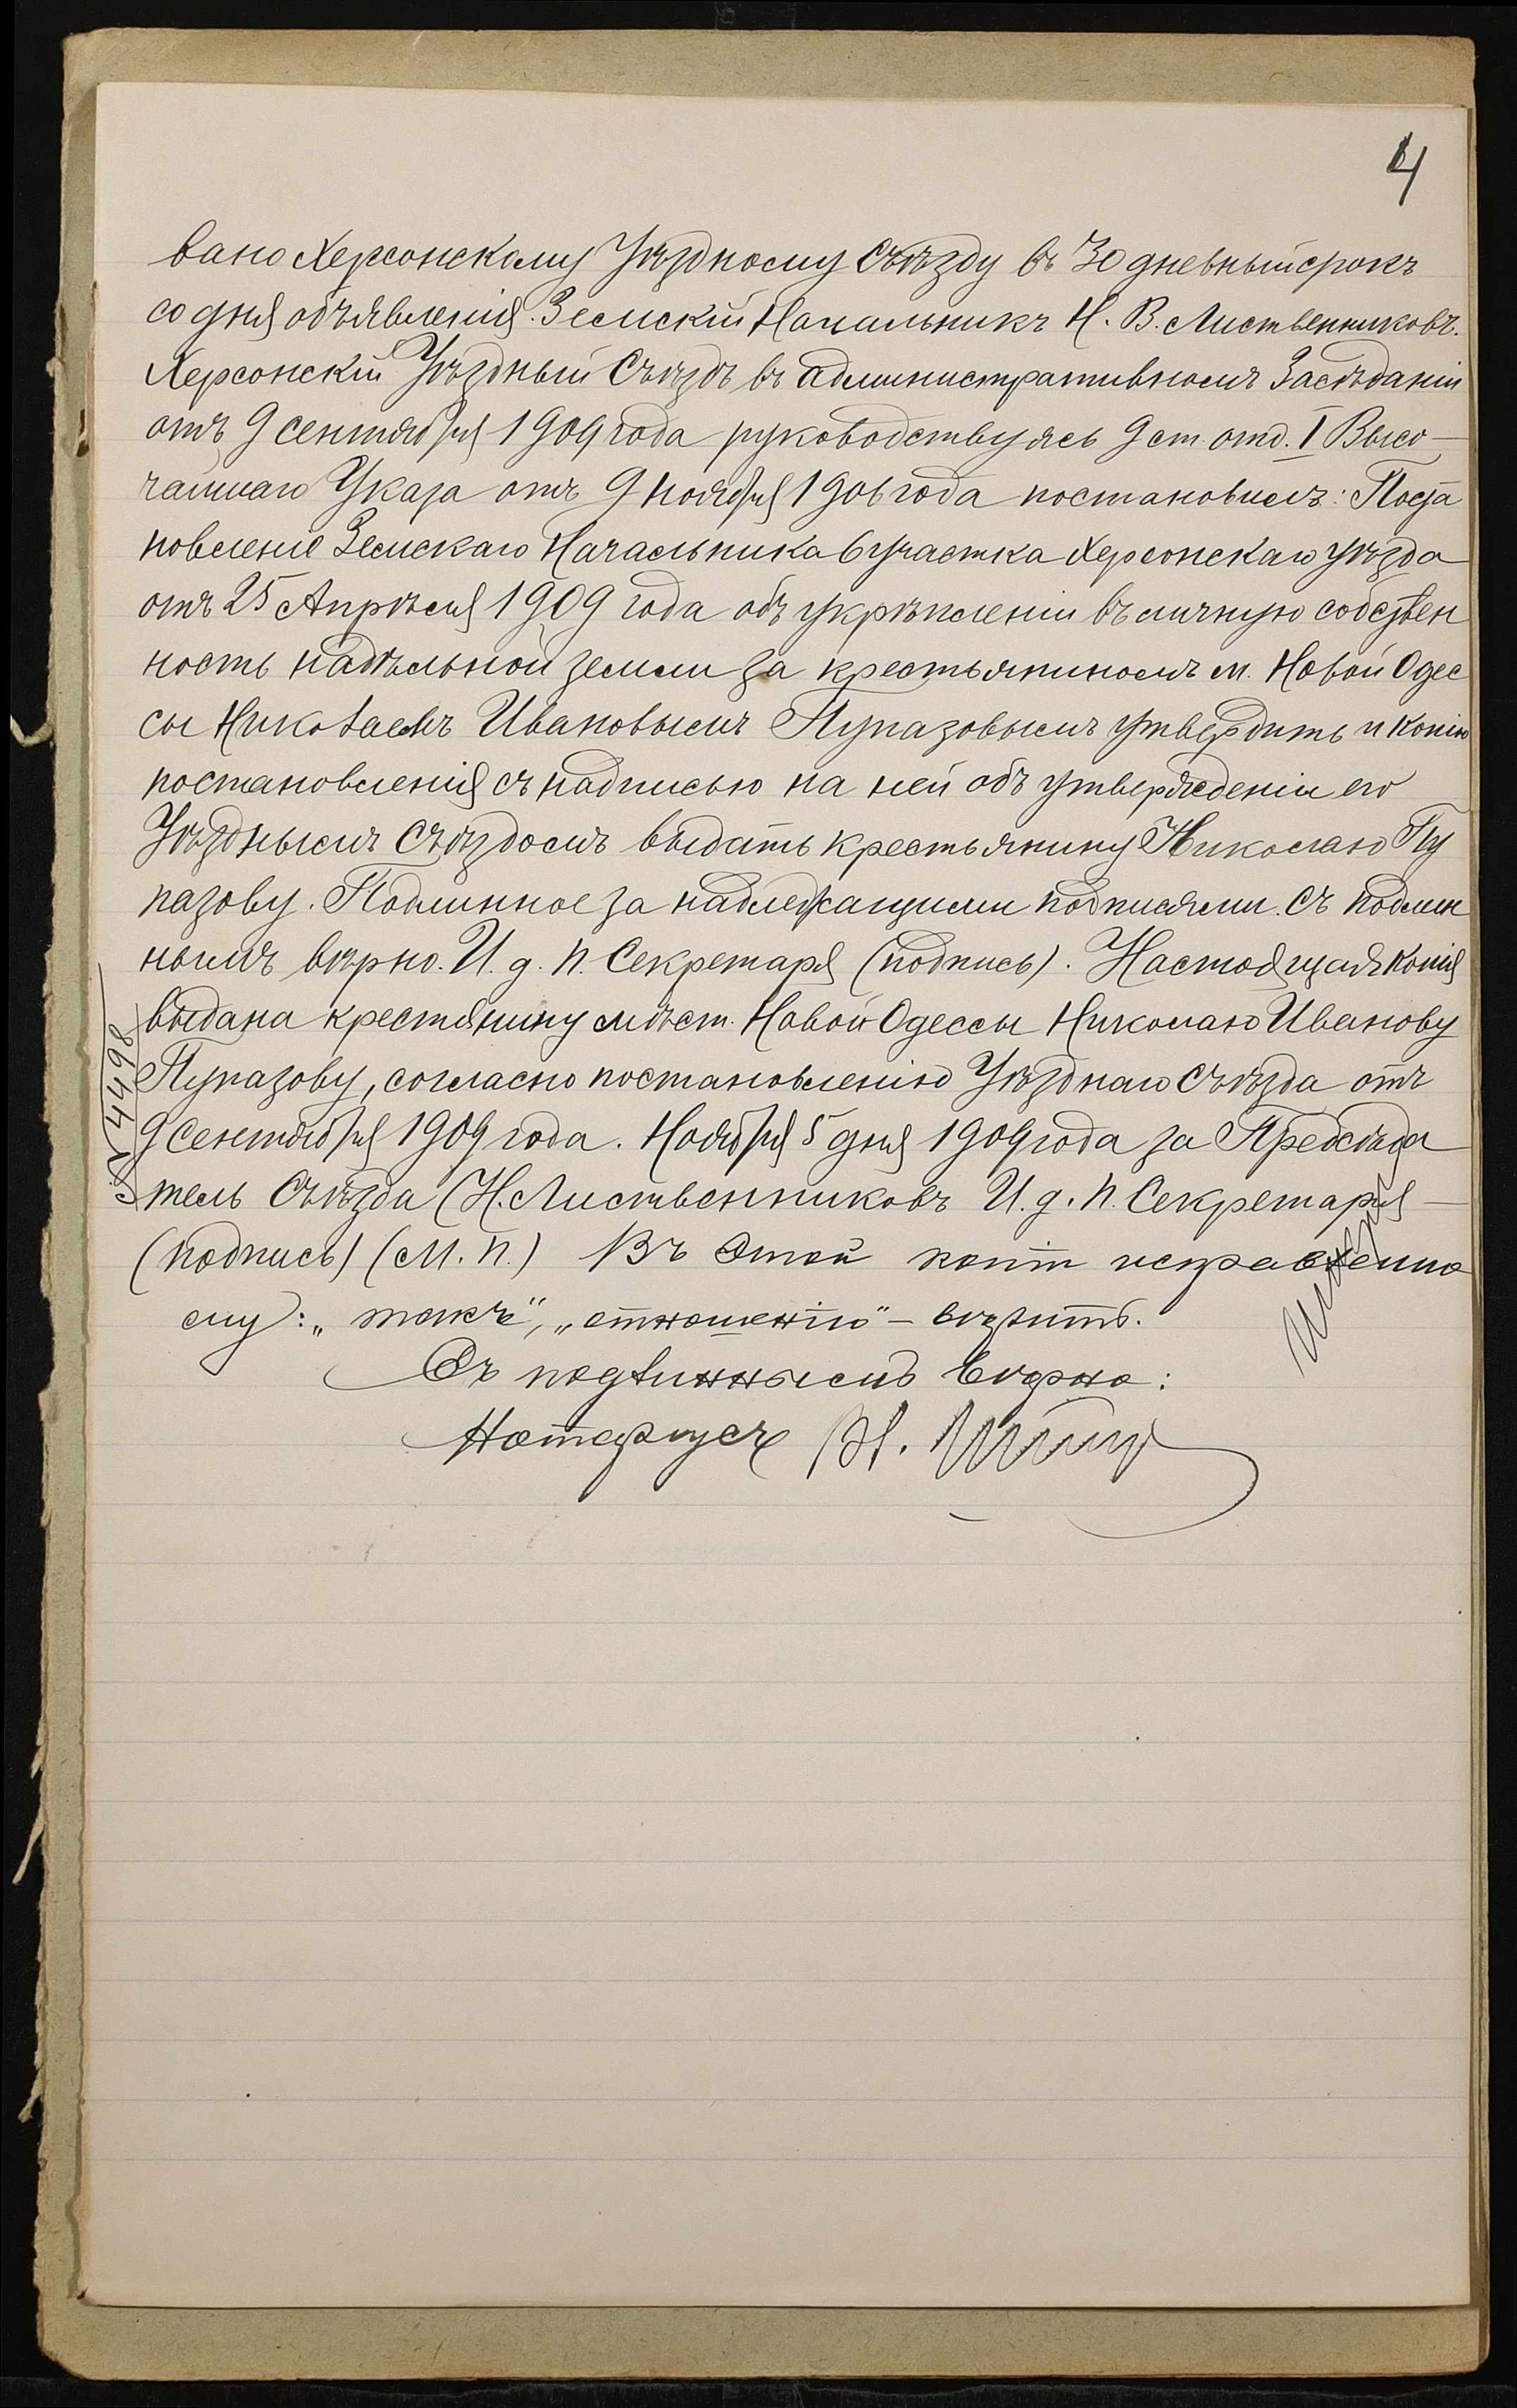 4
вано Херсонскому Уѣздному Съѣзду въ 30 дневный срокъ
со дня объявленія. Земскій Начальникъ Н. В. Лиственниковъ.
Херсонскій Уѣздный Съѣздъ въ административномъ Засѣданіи
отъ 9 сентября 1909 года руководствуясь 9 ст. отд. I Высо-
чайшаго Указа отъ 9 ноября 1906 года постановилъ: Поста
новленіе Земскаго Начальника 6 участка Херсонскаго уѣзда
отъ 25 Апрѣля 1909 года объ укрѣпленіи въ личную собствен
ность надѣльной земли за крестьяниномъ м. Новой Одес
сы Николаемъ Ивановымъ Пугазовымъ утвердить и копію
постановленія съ надписью на ней объ утвержденіи его
Уѣзднымъ Съѣздомъ выдать крестьянину Николаю Пу
газову. Подлинное за надлежащими подписями. Съ подлин
нымъ вѣрно. И. д. п. Секретаря (подпись). Настоящая копія
выдана крестянину мѣст. Новой Одессы Николаю Иванову
Пугазову, согласно постановленію Уѣзднаго Съѣзда отъ
9 Сентября 1909 года. Ноября 5 дня 1909 года за Предсѣда
тель Съѣзда (Н. Лиственниковъ И. д. п. Секретаря —
(подпись) (М. П.) Въ этой копіи исправленно
му: „такъ", „отношенію" – вѣрить.
Съ подлиннымъ вѣрно:
Нотаріусъ
№ 4498